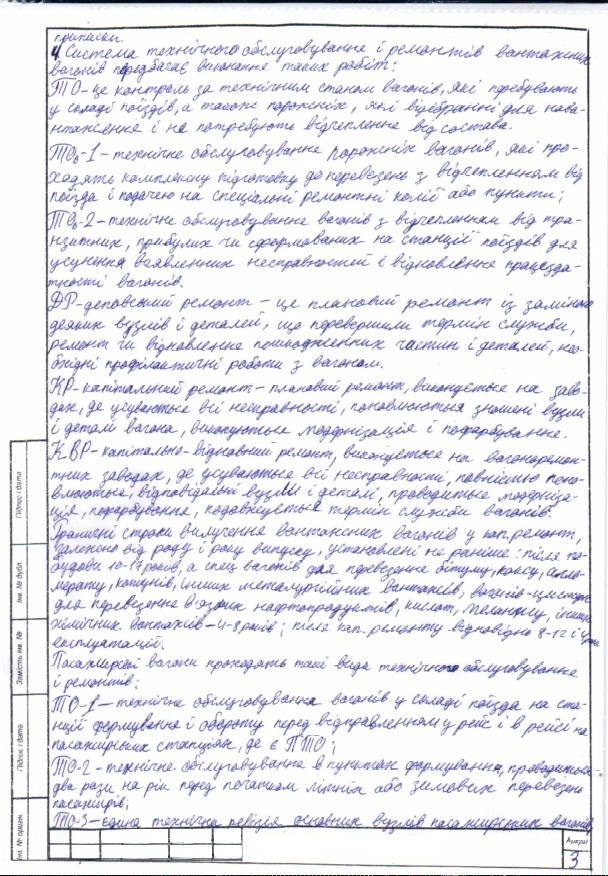 приписки.
4 Система технічного обслуговування і ремонтів вантажних
вагонів передбачає виконання таких робіт:
ТО-це контроль за технічним станом вагонів, які перебувають
у складі поїздів, а також порожніх, які відібранні для нава-
нтаження і не потребують відчеплення від состава.
ТОв-1-технічне обслуговування порожніх вагонів, які про-
ходять комплексну підготовку до перевезень з відчепленням від
поїзда і подачею на спеціальні ремонтні колії або пункти;
ТОв-2-технічне обслуговування вагонів з відчепленням від тра-
нзитних, прибулих чи сформованих на станції поїздів для
усунення виявленних несправностей і відновлення працезда-
тності вагонів.
ДР-деповський ремонт - це плановий ремонт із заміною
деяких вузлів і деталей, що перевершили термін служби,
ремонт чи відновлення пошкодженних частин і деталей, нео-
бхідні профілактичні роботи з вагоном.
КР-капітальний ремонт-плановий ремонт, виконується на заво-
дах, де усуваються всі несправності, поновлюються зношені вузли
і деталі вагона, виконується модернізація і пофарбування.
КВР-капітально-відновний ремонт, виконується на вагоноремон-
тних заводах, де усуваються всі несправності, повністю поно-
влюються, відповідальні вузли і деталі, проводиться модерніза-
ція, пофарбування, подовжується термін служби вагонів.
Граничні строки вилучення вантажних вагонів у кап.ремонт,
залежно від роду і року випуску, установлені не раніше: після по-
будови 10-17 років, а спец вагонів для перевезення бітуму, коксу, агло-
мерату, котунів, інших металургійних вантажів, вагонів-цистерн
для перевезення в'язких нафтопродуктів, кислот, меланжу, інших
хімічних вантажів-4-8 років; після кап.ремонту відповідно 8-12 і
експлуатації.
Пасажирські вагони проходять такі види технічного обслуговування
і ремонтів:
ТО-1-технічне обслуговування вагонів у складі поїзда на ста-
нції формування і обороту перед відправленням у рейс і в рейсі на
пасажирських станціях, де є ПТО;
ТО-2-технічне обслуговування в пунктах формування, проводиться
два рази на рік перед початком літніх або зимових перевезень
пасажирів;
ТО-3-єдина технічна ревізія основних вузлів пасажирських вагонів,
Підпис і дата
Інв. № дубл.
Замість інв. №
Підпис і дата
Інв. № оригін
Аркуш
3